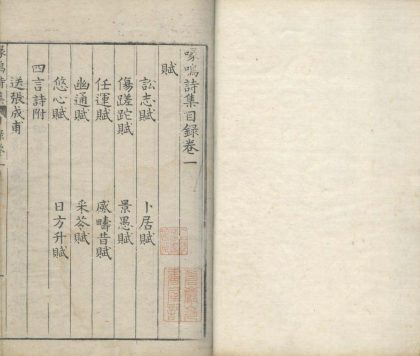 喙鳴詩集目錄卷一
賦
訟志賦 卜居賦
傷蹉跎賦 景愚賦
任運賦 感疇昔賦
幽通賦 采苓賦
悠心賦 日方升賦
四言詩附
送張成甫
喙鳴詩集